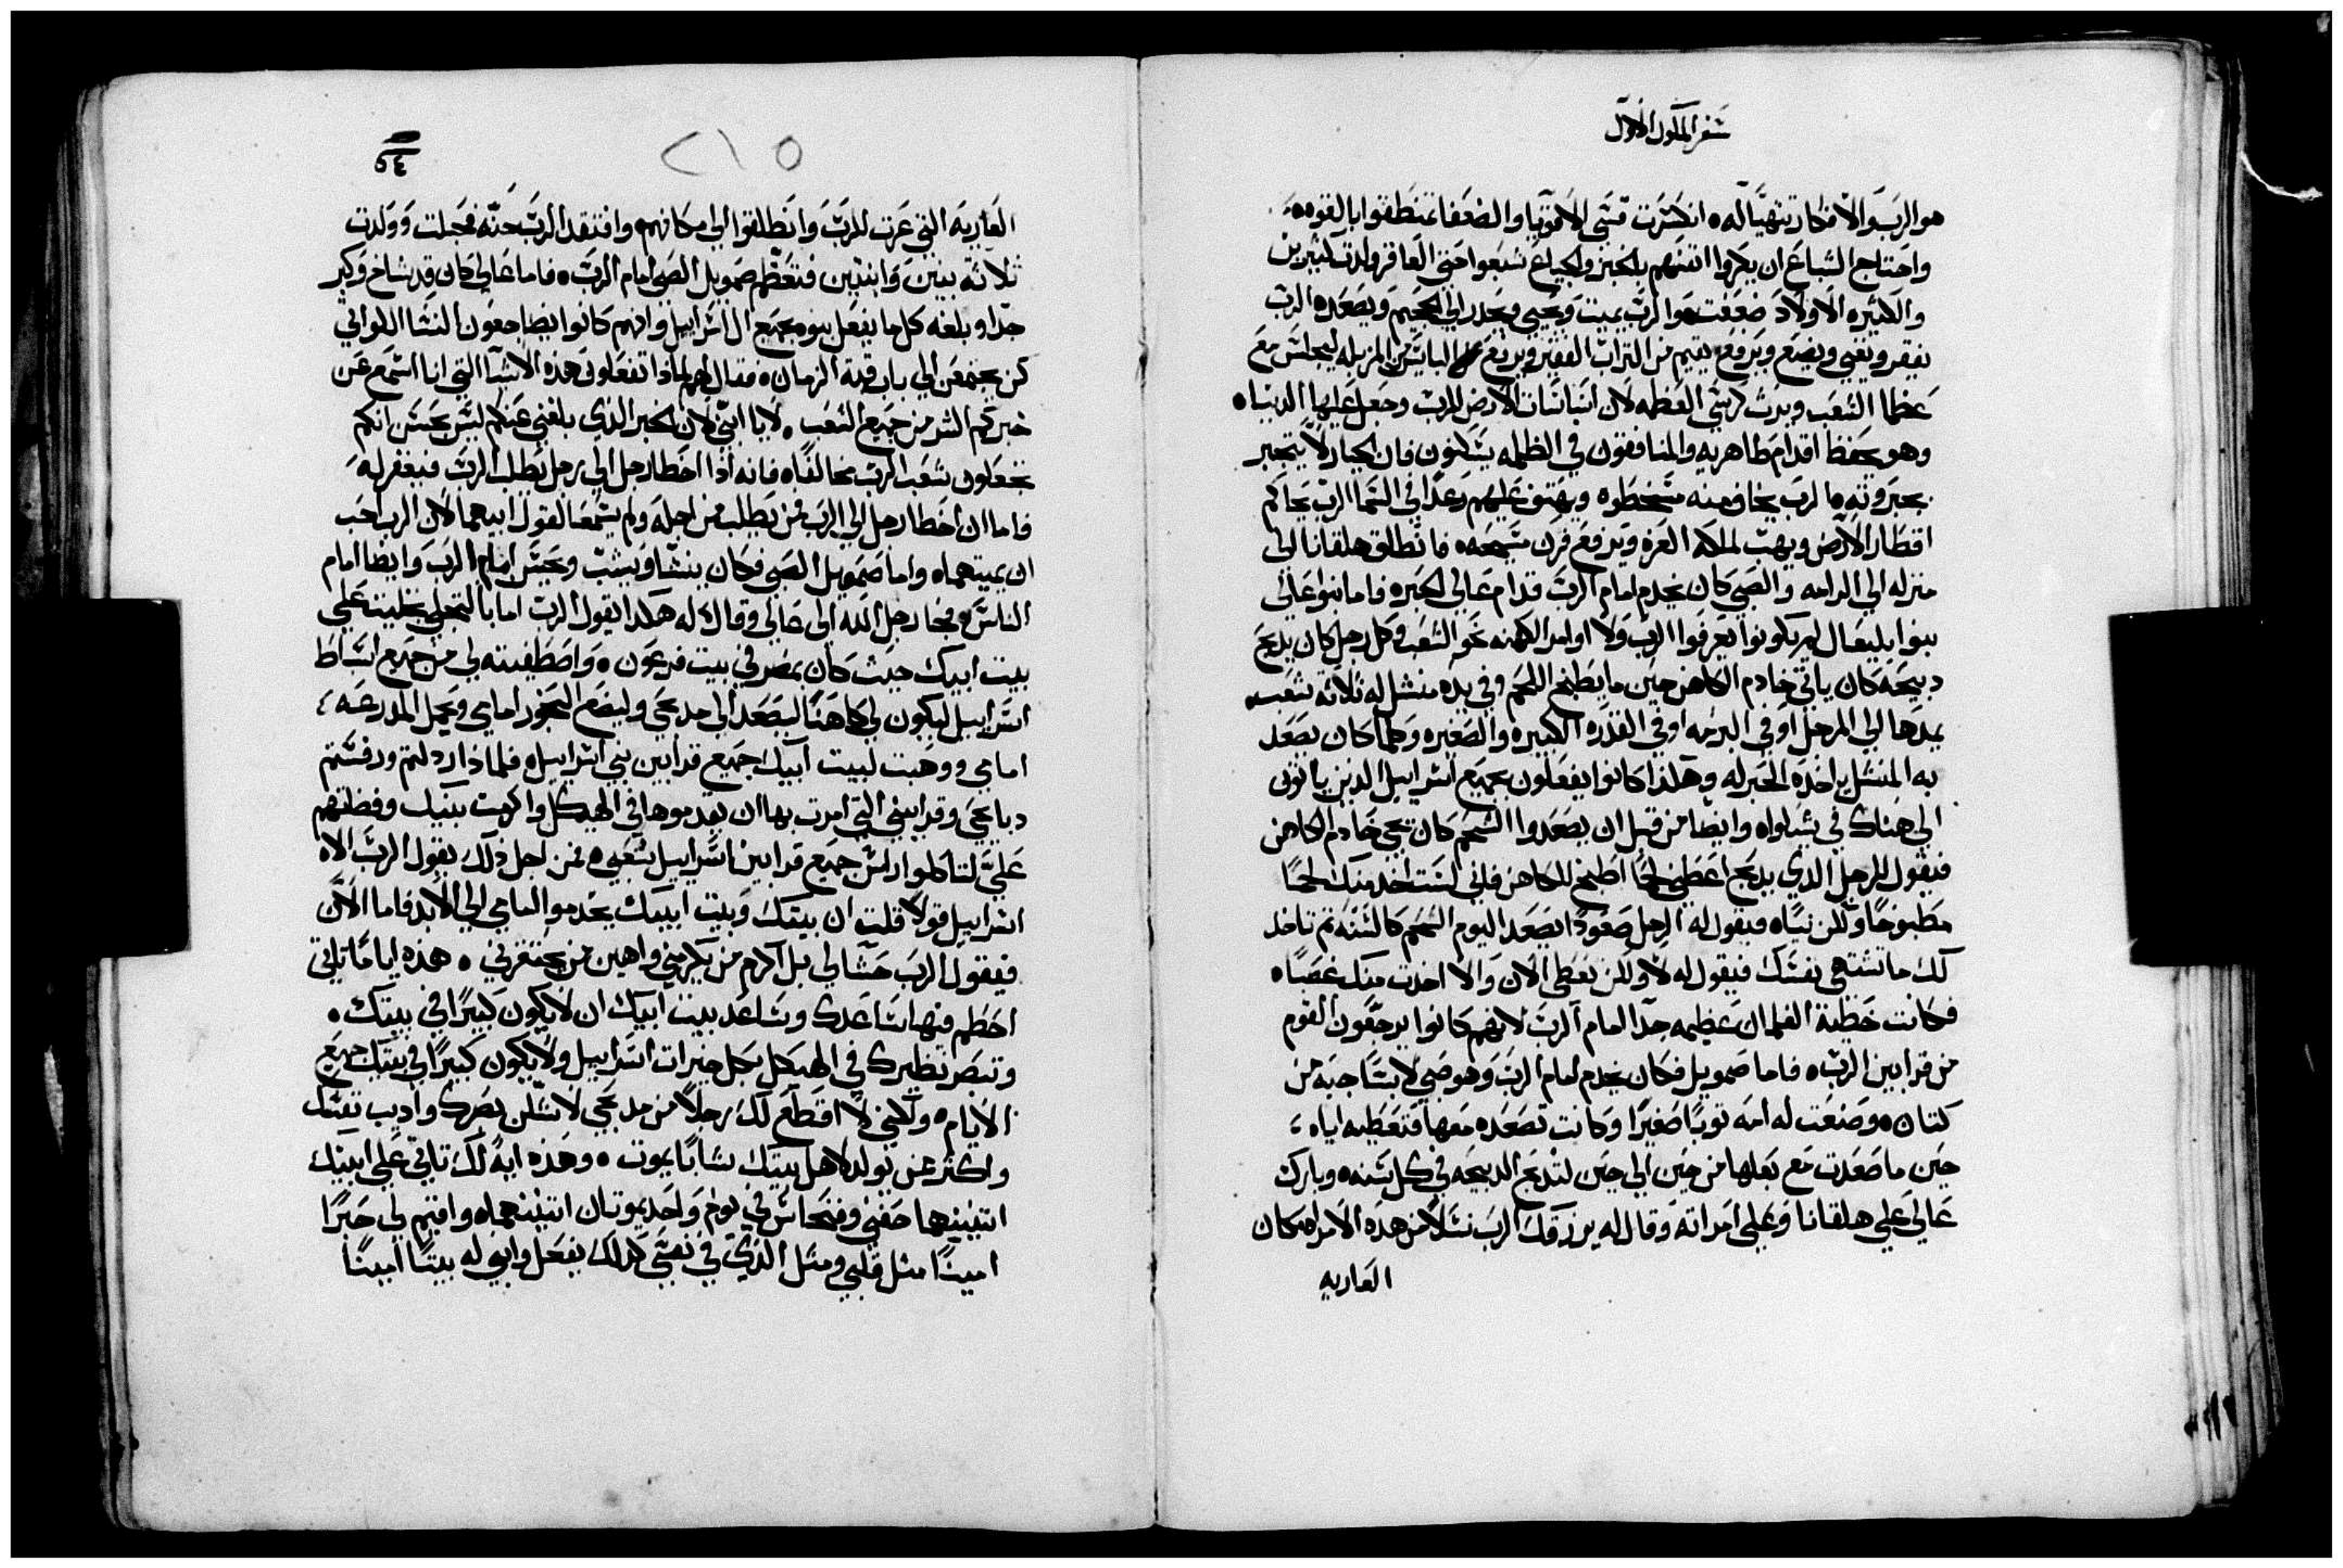 سفر الملوك الاول
هو الرب والافكار تتهيا له ٥ انكسرت قسي الاقويا والضعفا تمنطقوا بالقوه ٥
واحتاج الشباع ان يكروا انفسهم بالخبز والجياع شبعوا حتى العاقر ولدت كثيرين
والكثيره الاولاد ضعفت هو الرب يميت ويحيى ويحدر الي الجحيم ويصعد ٥ الرب
يفقر ويغني ويضع ويرفع يقيم من التراب الفقير ويرفع البايس من المزبله ليجلس مع
عظما الشعب ويرث كرسي العظمه لان اساسات الارض للرب وجعل عليها الدنيا ٥
وهو يحفظ اقدام طاهريه والمنافقون في الظلمه يسكنون فان الجبار لا يتجبر
بجبروته ٥ الرب يخاف منه مسخطوه ويهتف عليهم رعدا في السما الرب يحاكم
اقطار الارض ويهب لملكه العزه ويرفع قرن مسيحه ٥ فانطلق هلقانا الي
منزله الي الرامه والصبي كان يخدم امام الرب قدام عالي الحبر ٥ فاما بنوا عالي
بنوا بليعال لم يكونوا يعرفوا الرب ولا اوامر الكهنه نحو الشعب وكل رجل كان يدبح
دبيحه كان ياتي خادم الكاهن حين ما يطبخ اللحم وفي يده منشل له ثلاثة شعب
يمدها الي المرجل او في البرمه او في القدره الكبيره والصغيره وكلما كان يصعد
به المنشل ياخذه الحبر له وهكذا كانوا يفعلون بجميع اسراييل الذين ياتون
الي هناك في شيلوا ٥ وايضا من قبل ان يصعدوا الشحم كان يجي خادم الكاهن
فيقول للرجل الذي يدبح اعطني لحما اطبخ للكاهن فاني لست اخد منك لحما
مطبوخا ولكن نيا ٥ فيقول له الرجل صعودا يصعد اليوم الشحم كالسنه ثم تاخد
لك ما تشتهي نفسك فيقول له لا ولكن تعطي الان والا اخدت منك غصبا ٥
فكانت خطية الغلمان عظيمه جدا امام الرب لانهم كانوا يرجفون القوم
من قرابين الرب ٥ فاما صمويل فكان يخدم امام الرب وهو صبي لابسا جبه من
كتان ٥ وصنعت له امه توبا صغيرا وكانت تصعده معها فتعطيه اياه ،
حين ما صعدت مع بعلها من حين الي حين لتدبح الدبيحه في كل سنه ٥ وبارك
عالي علي هلقانا وعلي امراته وقال له يرزقك الرب نسلا من هذه الامراه مكان
العاريه
٥٤
٢١٥
العاريه التي عرت للرب وانطلقوا الي مكانهم وافتقد الرب حنه فحبلت وولدت
ثلاثة بنين وابنتين فتعظم صمويل الصبي امام الرب ٥ فاما عالي كان قد شاخ وكبر
جدا وبلغه كل ما يفعل بنوه بجميع ال اسراييل وانهم كانوا يضاجعون النسا اللواتي
كن يجتمعن الي باب قبة الزمان ٥ فقال لهم لماذا تفعلون هذه الاشيا التي انا اسمع عن
خبركم الشر من جميع الشعب ٥ لا يا ابني لان الخبر الذي بلغني عنكم ليس بحسن انكم
تجعلون شعب الرب مخالفا ٥ فانه اذا اخطا رجل الي رجل يطلب الرب فيغفر له
فاما ان اخطا رجل الي الرب فمن يطلب من اجله ولم يسمعا لقول ابيهما لان الرب احب
ان يميتهما ٥ واما صمويل الصبي فكان ينشا ويشب ويحسن امام الرب وايضا امام
الناس ٥ فجا رجل الله الي عالي وقال له هكذا يقول الرب اما بالتجلي تجليت علي
بيت ابيك حيث كان بمصر في بيت فرعون ٥ واصطفيته لي من جميع اسباط
اسراييل ليكون لي كاهنا ليصعد الي مدبحي وليضع البخور امامي ويحمل المدرعه ،
امامي ووهبت لبيت ابيك جميع قرابين بني اسراييل ٥ فلماذا ارذلتم ورفستم
دبايحي وقرابيني التي امرت بها ان يقدموها في الهيكل واكرمت بنيك وفضلتهم
علي لتاكلوا راس جميع قرابين اسراييل شعبي ٥ فمن اجل ذلك يقول الرب الاه
اسراييل قولا قلت ان بيتك وبيت ابيك يخدموا امامي الي الابد فاما الان
فيقول الرب حشا لي بل اكرم من يكرمني واهين من يحتقرني ٥ هذه اياما تاتي
احطم فيها ساعدك وساعد بيت ابيك ان لا يكون كبيرا في بيتك ٥
وتبصر نظيرك في الهيكل بكل خيرات اسراييل ولا يكون كبيرا في بيتك جميع
الايام ٥ ولكني لا اقطع لك رجلا من مدبحي لاسلن بصرك وأديب نفسك
واكثر من تولد لاهل بيتك شابا يموت ٥ وهذه ايةً لك تاتي علي ابنيك
اتنينهما حفني وفنحاس في يوم واحد يموتان اتنينهما ٥ واقيم لي حبرا
امينا مثل قلبي ومثل الذي في نفسي كذلك يفعل وابني له بيتا امينا